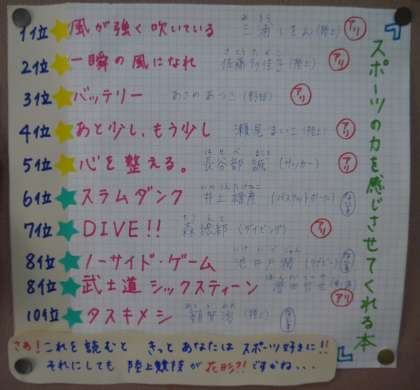 スポーツの力を感じさせてくれる本
1位 風が強く吹いている 三浦しをん(陸上) アリ
2位 一瞬の風になれ 佐藤多佳子(陸上) アリ
3位 バッテリー あさのあつこ(野球) アリ
4位 あと少し、もう少し 瀬尾まいこ(陸上) アリ
5位 心を整える。 長谷部誠(サッカー) アリ
6位 スラムダンク 井上雄彦(バスケットボール)
7位 DIVE!! 森絵都(ダイビング) アリ
8位 ノーサイド・ゲーム 池井戸潤
8位 武士道シックスティーン アリ
10位 タスキメシ 額賀澪
さぁ!これを読むと きっとあなたはスポーツ好きに!!
それにしても 陸上競技が花形?!ですかね…